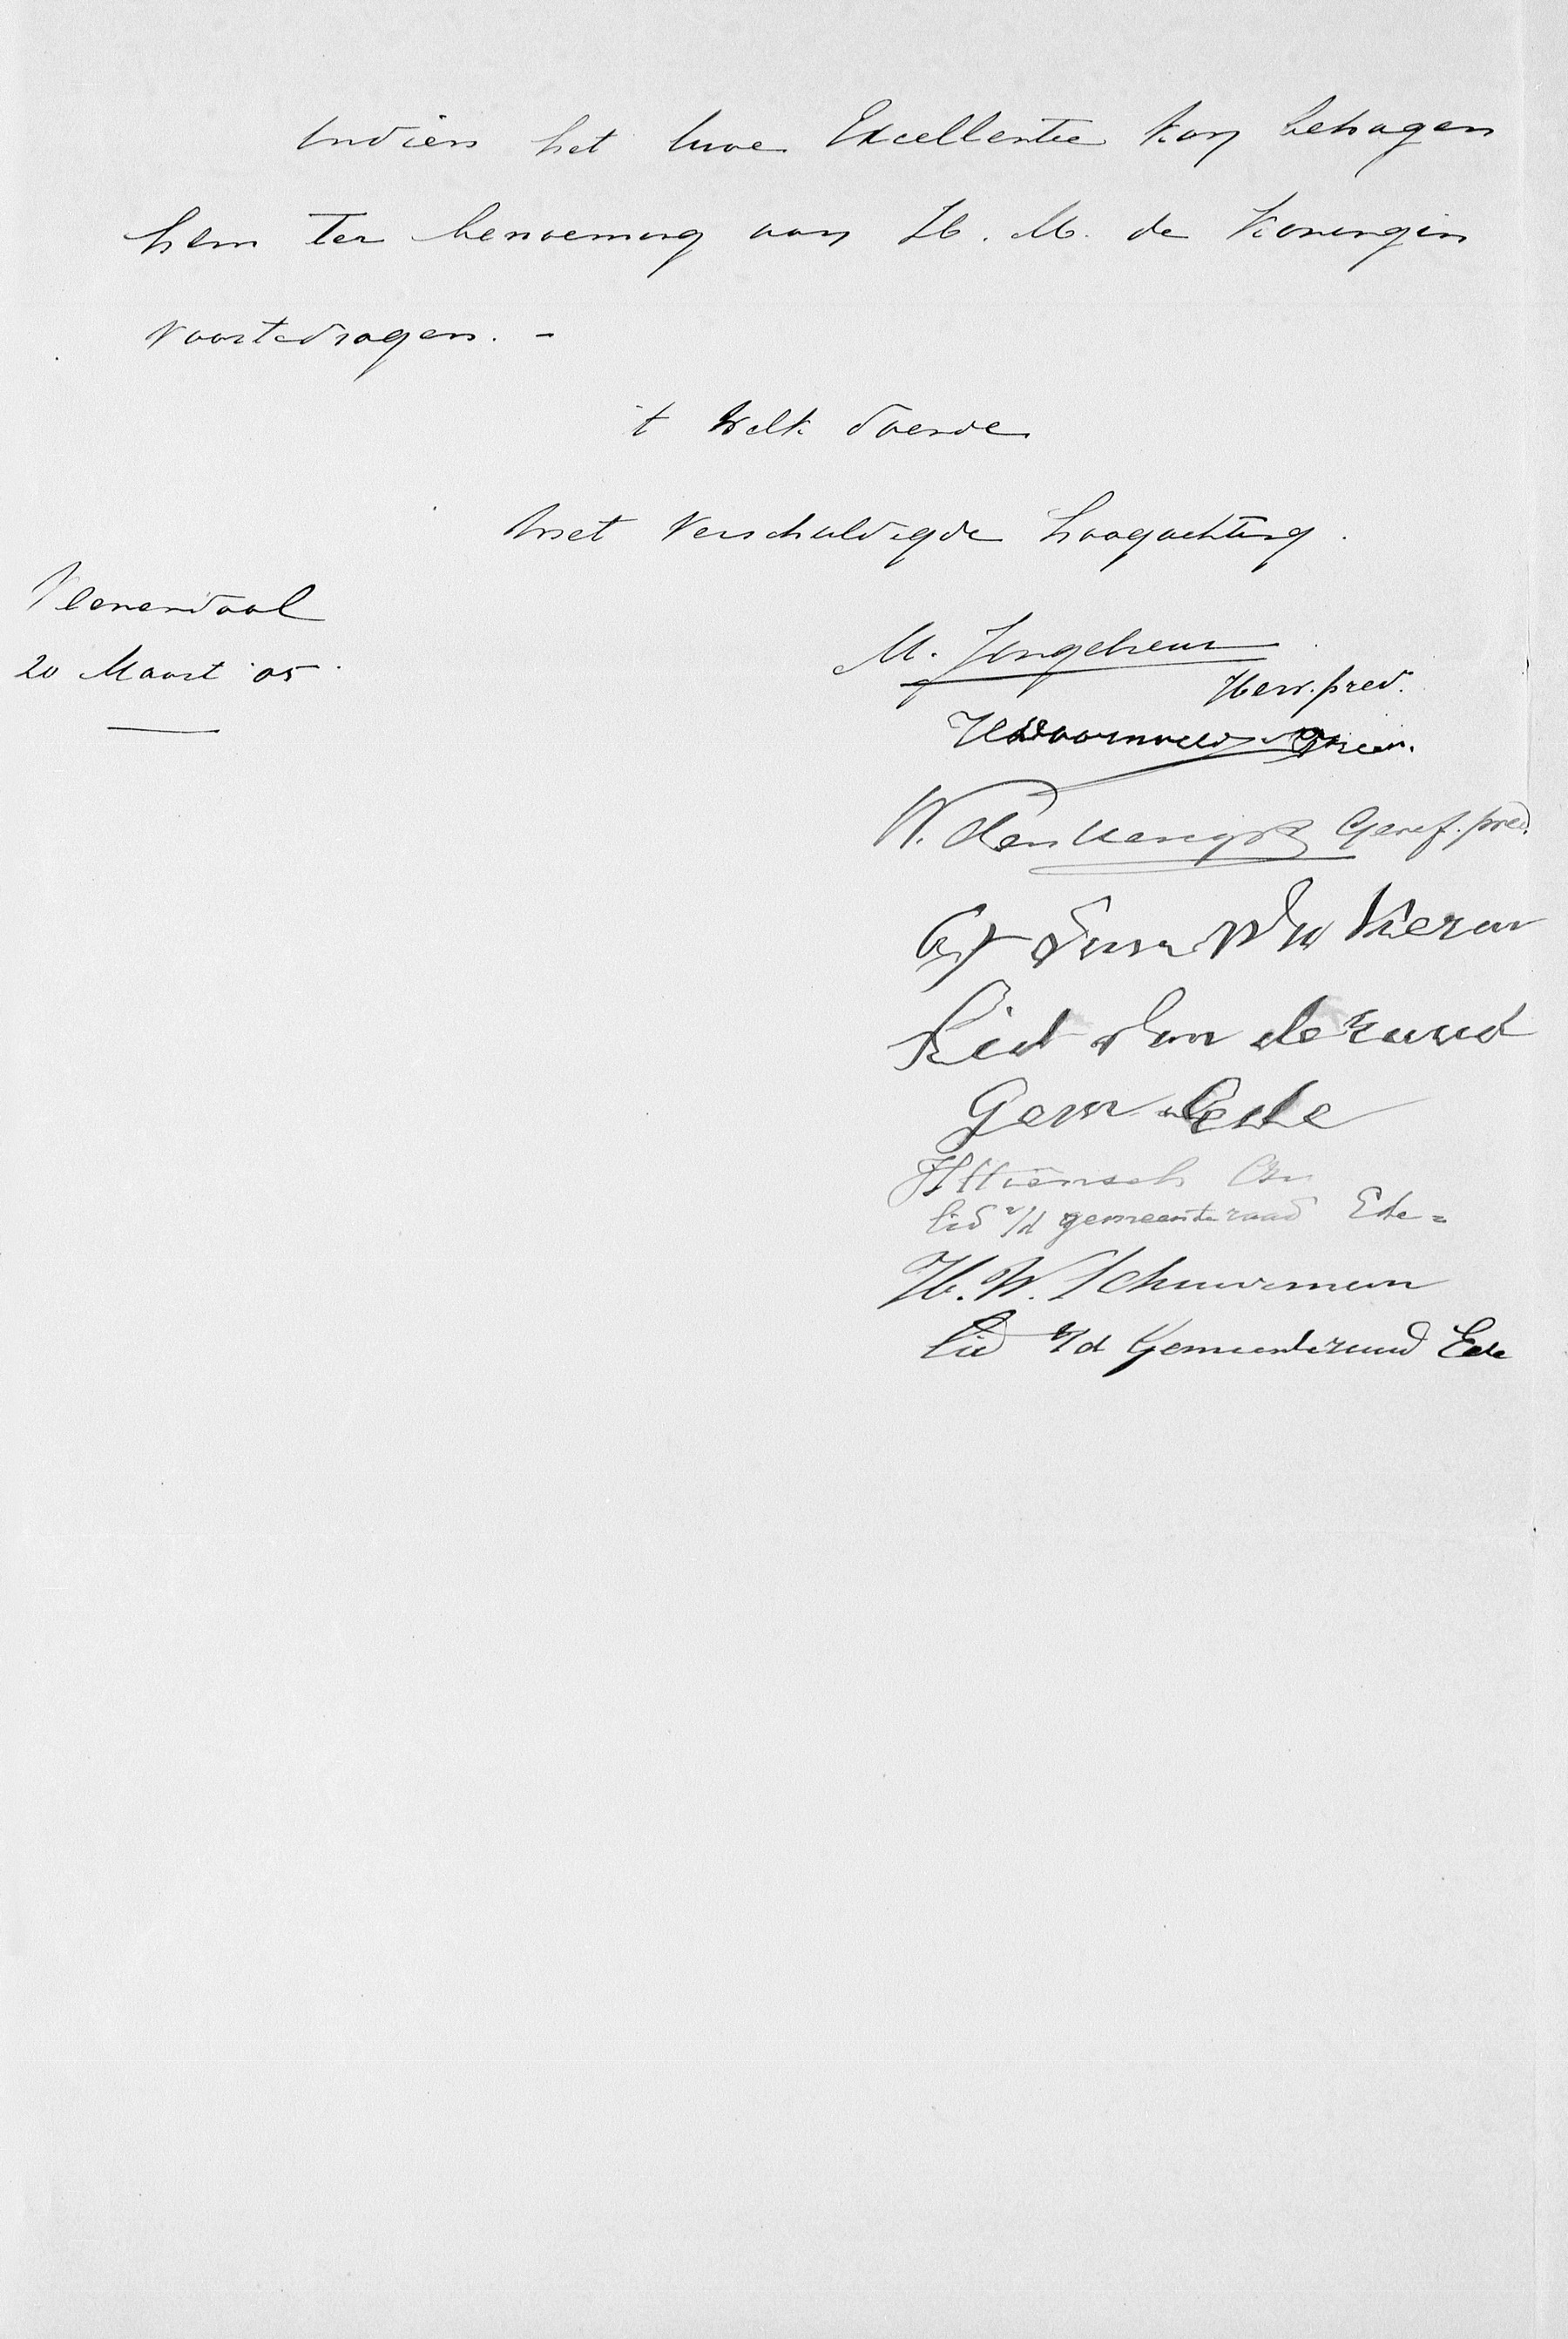 Indien het Uwe Excellentie kon behagen
hem ter benoeming aan H. M. de Koningin
voortedragen. -
't welk doende
Met verschuldigde hoogachting.
Veenendaal
20 Maart '05.
M. Jongebreur
Herv. pred.
W. den Hengst Geref. pred.
Lid van de raad
Gem Ede
lid v/d gemeenteraad Ede =
H. W. Schuurman
lid v/d Gemeenteraad Ede